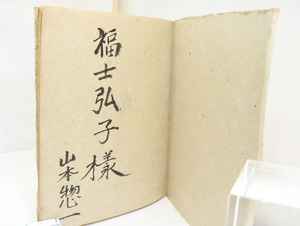 福士弘子様
山本惣一